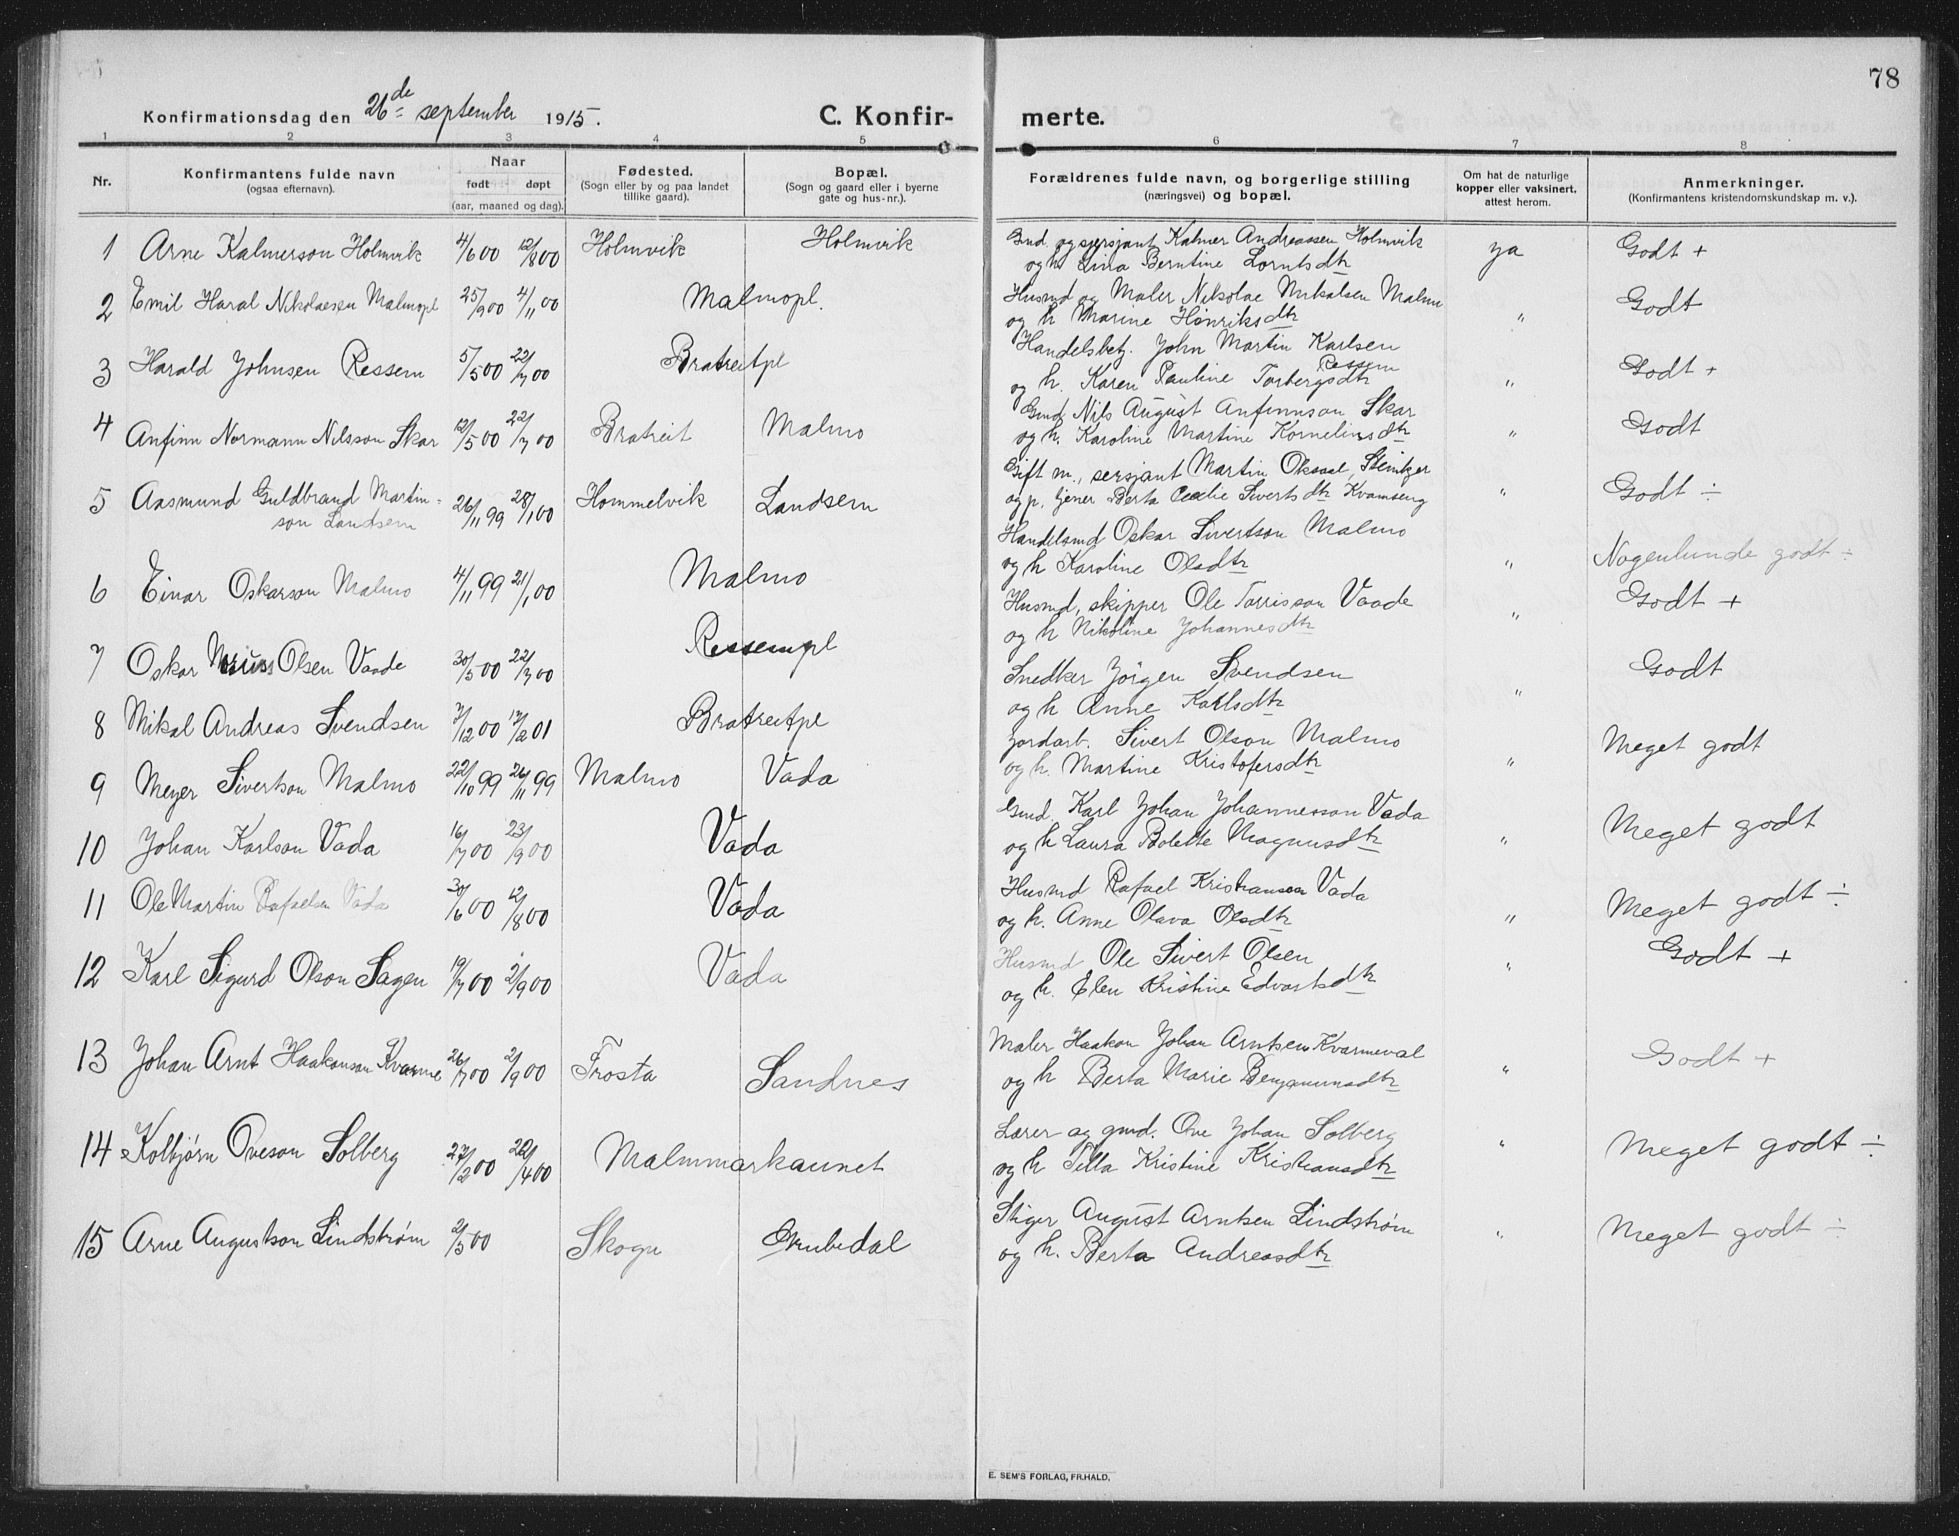 78
Konfirmationsdag den 26de september 1915.
C. Konfirmerte.
1 2 3 4 5 6 7 8
Nr.
Konfirmantens fulde navn
(ogsaa efternavn).
Naar
født døpt
(aar, maaned og dag).
Fødested.
(Sogn eller by og paa landet
tillike gaard).
Bopæl.
(Sogn og gaard eller i byerne
gate og hus-nr.).
Forældrenes fulde navn, og borgerlige stilling
(næringsvei) og bopæl.
Om hat de naturlige
kopper eller vaksinert,
attest herom.
Anmerkninger.
(Konfirmantens kristendomskundskap m. v.).
1 Arne Kalmerson Holmvik 4/6 00 12/8 00 Holmvik Holmvik Gmd. og sersjant Kalmer Andreassen Holmvik ya Godt +
og h. Lina Berntine Lorntsdtr
2 Emil Haral Nikolaesen Malmopl 25/9 00 4/11 00 Malmopl. Husmd og Maler Nikolae Mikalsen Malmo " Godt
og h Marine Henriksdtr
3 Harald Johnsen Ressem 5/5 00 22/7 00 Bratreitpl Handelsbetj. John Martin Karlsen " Godt +
Ressem
og h. Karen Pauline Torbergsdtr
4 Anfinn Normann Nilsson Skar 12/5 00 22/7 00 Bratreit Malmo Gmd. Nils August Anfinnson Skar " Godt
og h. Karoline Martine Korneliusdtr
5 Aasmund Guldbrand Martin- 26/11 99 28/1 00 Hommelvik Landsem Gift m., sersjant Martin Oksaal, Stenkjer " Godt ÷
son Landsem
og p. tjener Berta Cecilie Sivertsdtr Kvamseng
6 Einar Oskarson Malmo 4/11 99 21/1 00 Malmo Handelsmd Oskar Sivertson Malmo " Nogenlunde godt ÷
og h Karoline Olsdtr
7 Oskar Olsen Vaade 30/5 00 22/7 00 Ressempl Husmd, skipper Ole Torrisson Vaade " Godt +
og h Nikoline Johannesdtr
8 Mikal Andreas Svendsen 7/12 00 17/2 01 Bratreitpl Snedker Jörgen Svendsen " Godt
og h Anne Karlsdtr
9 Meyer Sivertson Malmo 22/10 99 26/11 99 Malmo Vada Jordarb. Sivert Olson Malmo " Meget godt
og h. Martine Kristofersdtr
10 Johan Karlson Vada 16/7 00 23/9 00 Vada Gmd. Karl Johan Johannesson Vada " Meget godt
og h Laura Bolette Magnusdtr
11 Ole Martin Rafaelsen Vada 30/6 00 12/8 00 Vada Husmd Rafael Kristiansen Vada " Meget godt ÷
og h. Anne Olava Olsdtr
12 Karl Sigurd Olson Sagen 19/7 00 2/9 00 Vada Husmd Ole Sivert Olsen " Godt +
og h. Elen Kristine Edvartsdtr
13 Johan Arnt Haakonson Kvarme 26/7 00 2/9 00 Frosta Sandnes Maler Haakon Johan Arntsen Kvarmeval " Godt +
og h Berta Marie Benjaminsdtr
14 Kolbjørn Oveson Solberg 27/2 00 22/4 00 Malmmarkaunet Lærer og gmd. Ove Johan Solberg " Meget godt ÷
og h Tella Kristine Kristiansdtr
15 Arne Augustson Lindstrøm 2/5 00 Skogn Grubedal Stiger August Arntsen Lindstrøm " Meget godt ÷
og h. Berta Andreasdtr
E. SEM'S FORLAG, FR.HALD.